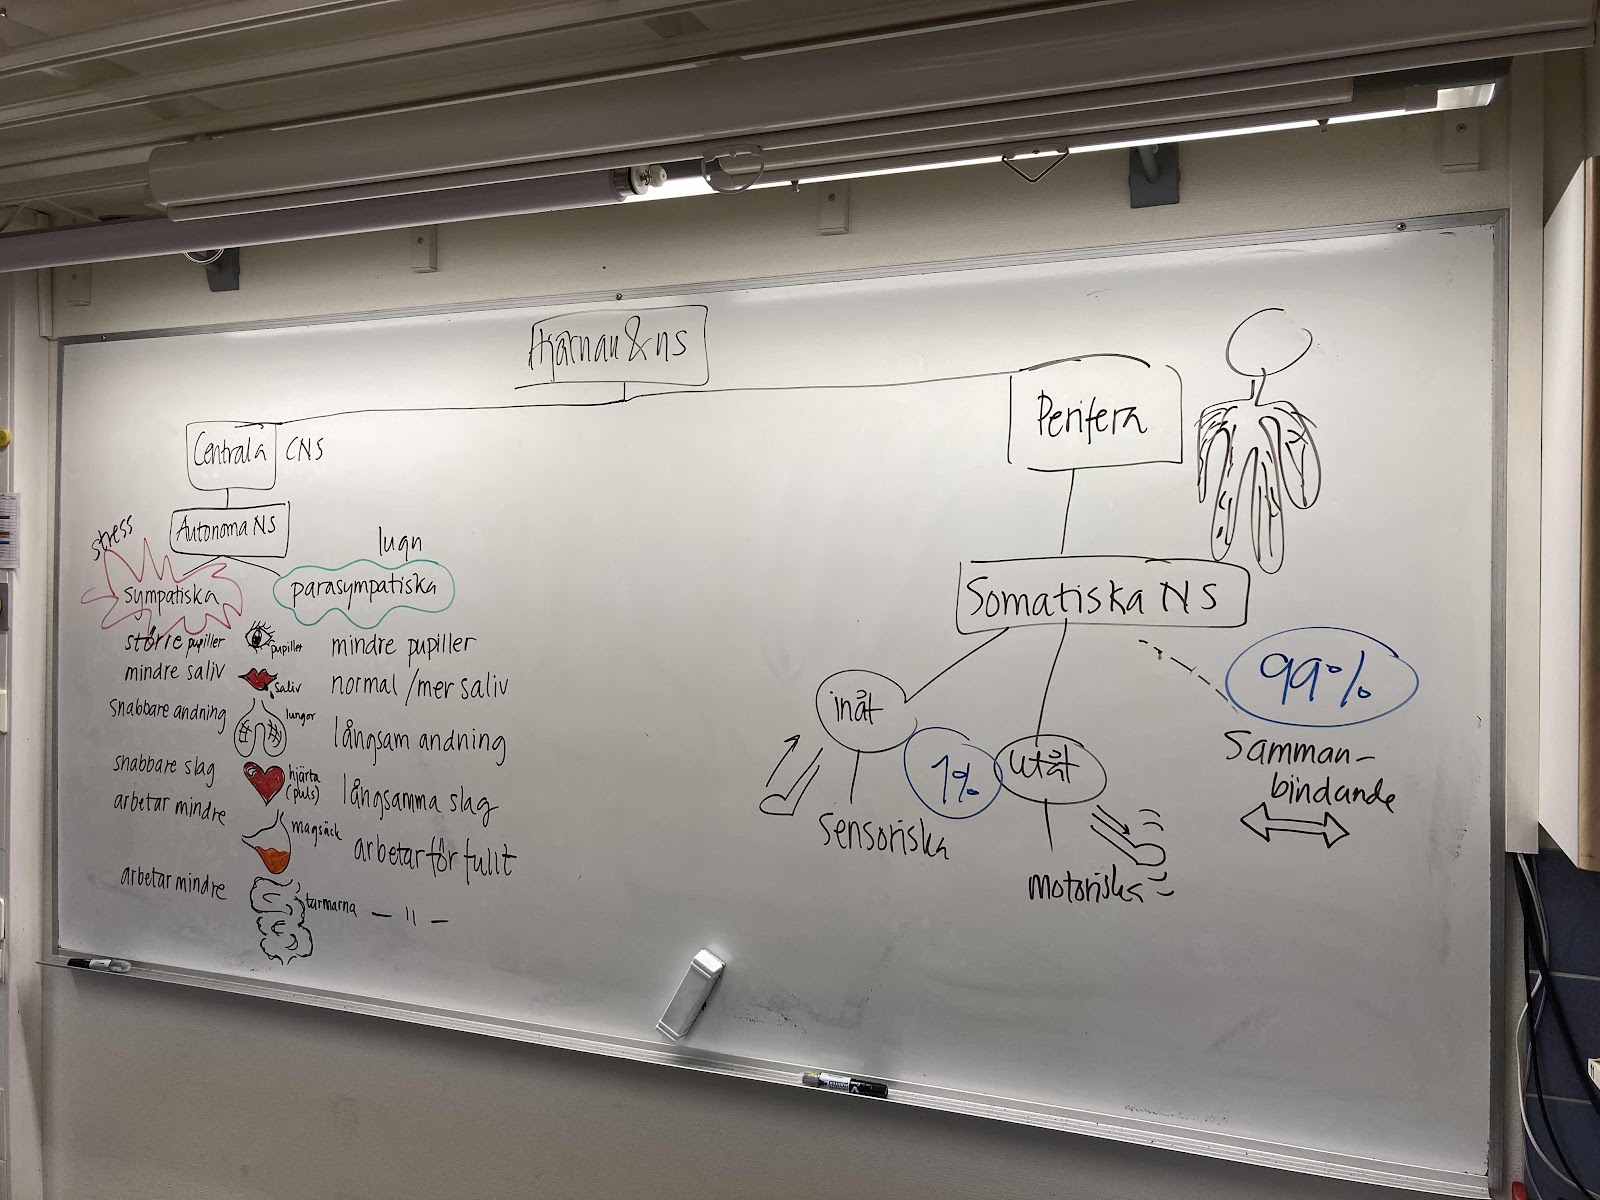 Hjärnan & ns
Centrala CNS
Autonoma NS
stress
sympatiska
lugn
parasympatiska
större pupiller
pupiller
mindre pupiller
mindre saliv
saliv
normal/mer saliv
snabbare andning
lungor
långsam andning
snabbare slag
hjärta
(puls)
långsamma slag
arbetar mindre
magsäck
arbetar för fullt
arbetar mindre
tarmarna
— 11 —
Perifera
Somatiska NS
inåt
sensoriska
1%
utåt
motoriska
99%
Samman-
bindande